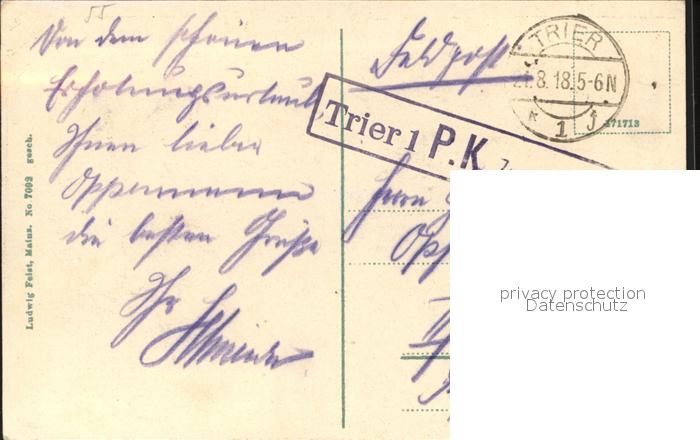 55
Von dem schönen
Erholungsurlaub
Ihnen lieber
Oppermann
die besten Grüße
Ihr
Feldpost
TRIER
8.18.5-6N
* 1 j
171713
Trier 1 P.K.
Herrn
Opp
privacy protection
Datenschutz
Ludwig Feist, Mainz. No 7092 gesch.